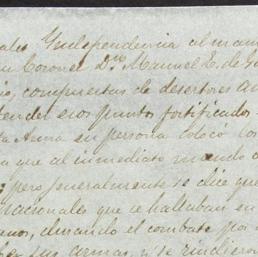 Independencia al man
Coronel Dn. Manuel E. de
compuestas de desertores
tender esos puntos fortificados
en persona colocó los
que al inmediato mando
pero generalmente se dice que
nacionales que se hallaban en
dando el combate por
sus armas, y se rindieron